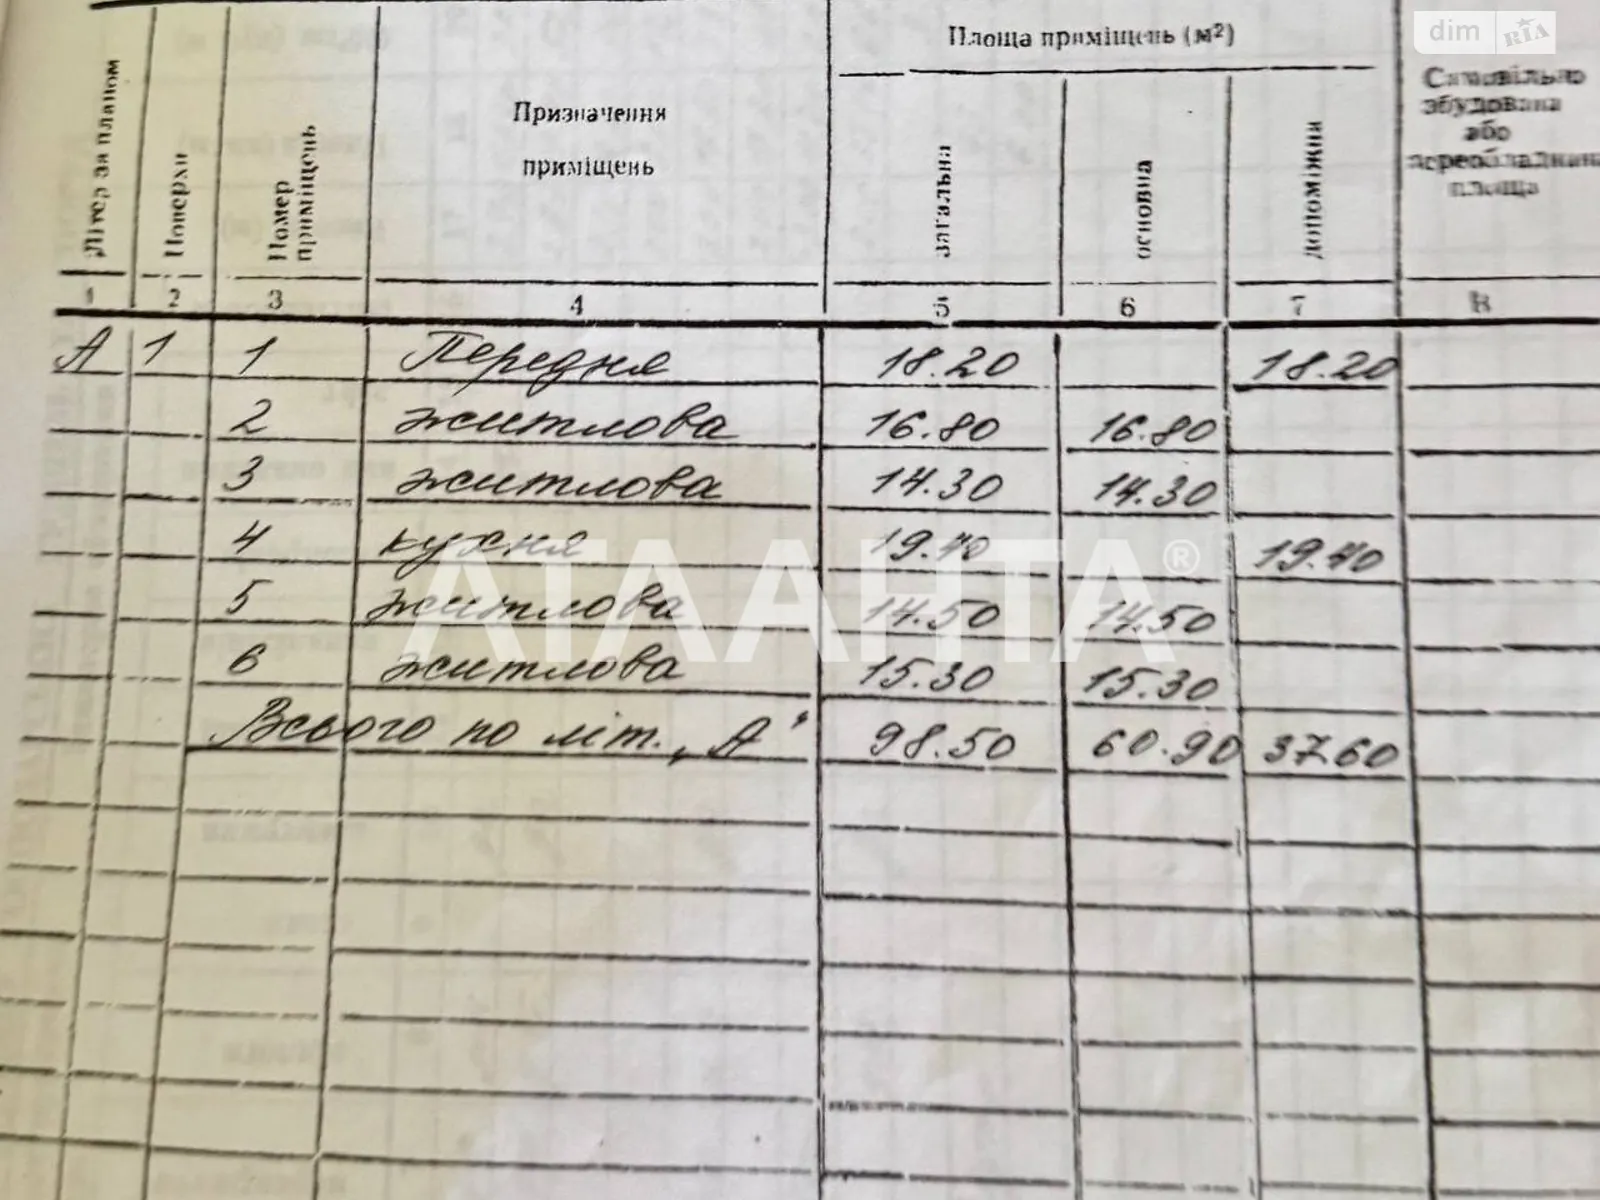 dim RIA
Площа приміщень (м²)
Літер за планом
Поверхи
Номер приміщень
Призначення приміщень
загальна
основна
допоміжна
Самовільно збудована або переобладнана площа
1 2 3 4 5 6 7 8
А 1 1 Передня 18.20 18.20
2 житлова 16.80 16.80
3 житлова 14.30 14.30
4 кухня 19.40 19.40
5 житлова 14.50 14.50
6 житлова 15.30 15.30
Всього по літ. „А" 98.50 60.90 37.60
АТЛАНТА®